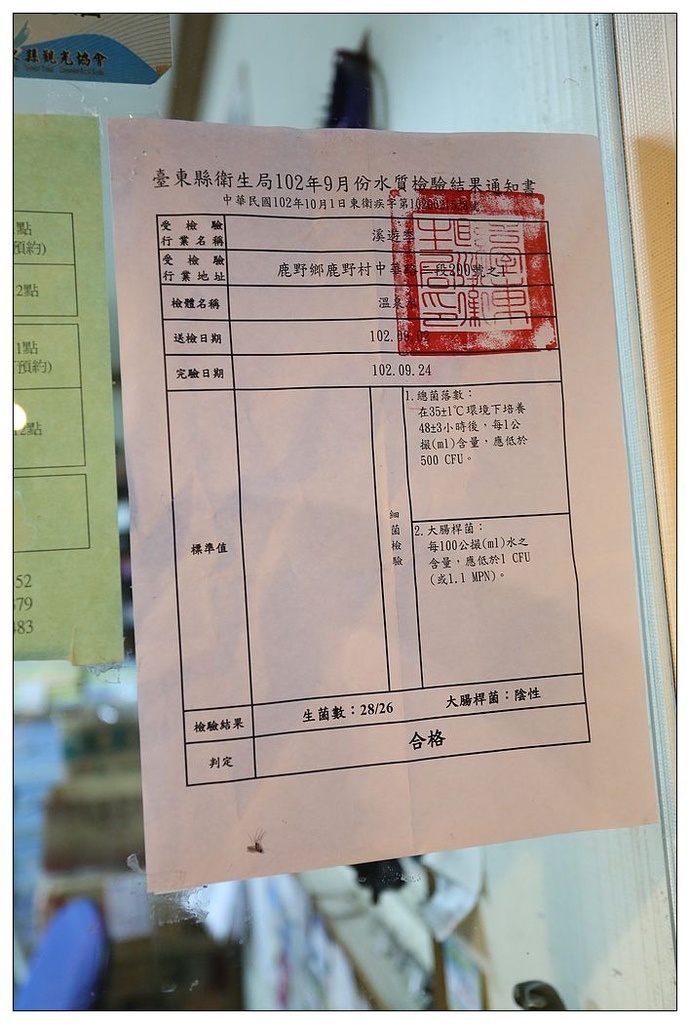 縣觀光協會
點
預約)
2點
1點
預約)
2點
52
679
483
臺東縣衛生局102年9月份水質檢驗結果通知書
中華民國102年10月1日東衛疾字第
受檢驗
行業名稱
溪遊
受檢驗
行業地址
鹿野鄉鹿野村中華路二段200號之
檢體名稱
溫泉
送檢日期
102.09.02
完驗日期
102.09.24
標準值
細菌檢驗
1.總菌落數：
在35±1℃環境下培養
48±3小時後，每1公
撮(ml)含量，應低於
500 CFU。
2.大腸桿菌：
每100公撮(ml)水之
含量，應低於1 CFU
(或1.1 MPN)。
檢驗結果
生菌數：28/26 大腸桿菌：陰性
判定
合格